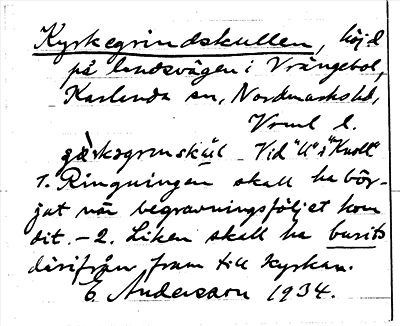 Kyrkegrindskullen, höjd
på landsvägen i Vrängebol,
Karlanda sn, Nordmarks hd,
Vrml l.
Vid "U" i "Kull"
1. Ringningen skall ha bör-
jat när begravningsföljet kom
dit. – 2. Liken skall ha burits
därifrån fram till kyrkan.
E Andersson 1934.